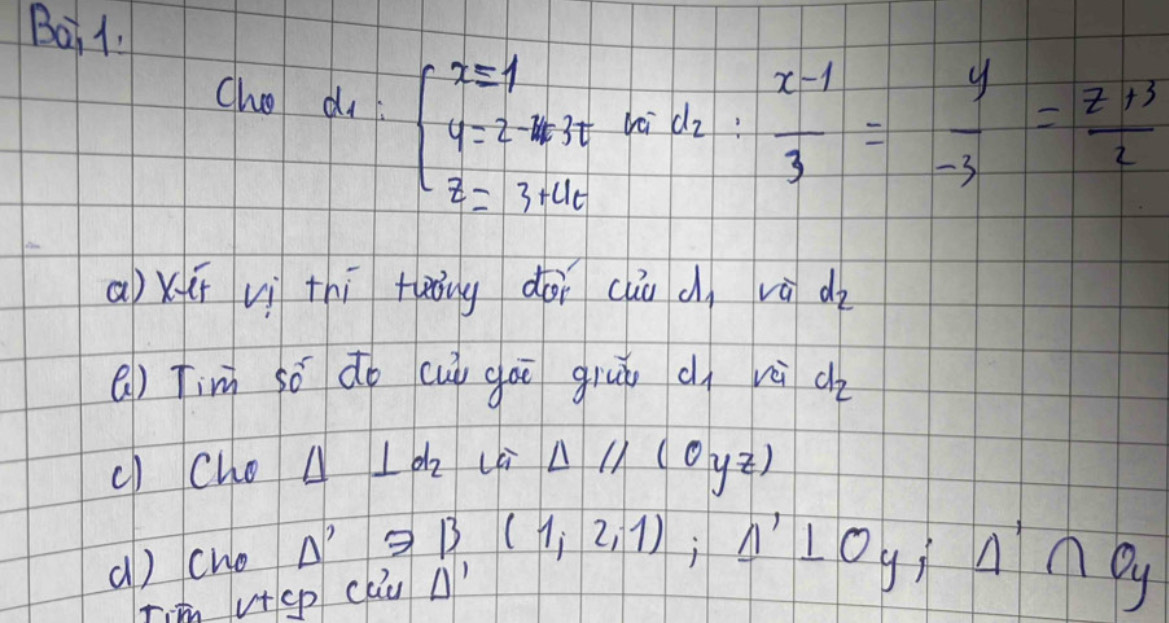 Bài 1:
Cho d₁ : { x = 1
y = 2 - 3t
z = 3 + 4t
và d₂ : x-1 / 3 = y / -3 = z+3 / 2
a) Xét vị thí tương đối của d₁ và d₂
b) Tìm số đo của góc giữa d₁ và d₂
c) Cho Δ ⊥ d₂ và Δ // (Oyz)
d) Cho Δ' ∋ B (1; 2; 1) ; Δ' ⊥ Oy ; Δ' ∩ Oy
Tìm vtcp của Δ'